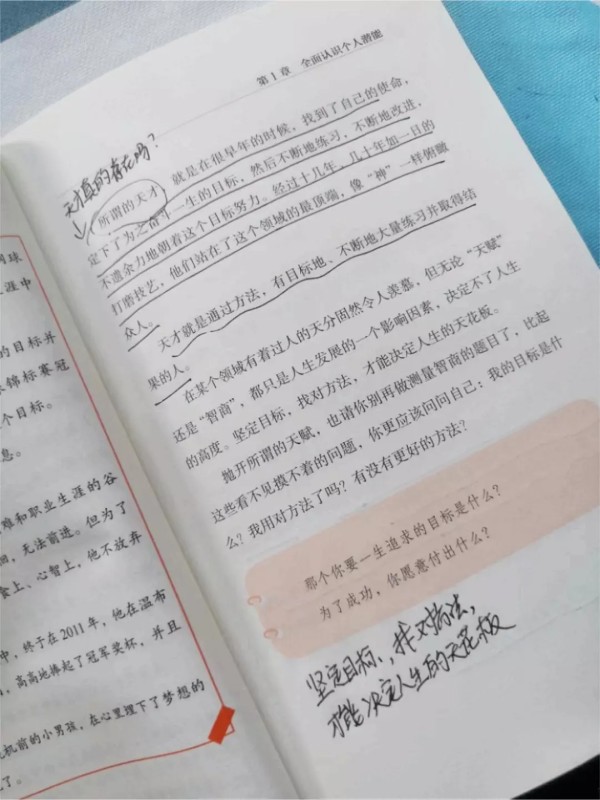 第1章 全面认识个人潜能
天才真的存在吗?
所谓的天才，就是在很早年的时候，找到了自己的使命，
定下了为之奋斗一生的目标，然后不断地练习，不断地改进，
不遗余力地朝着这个目标努力。经过十几年、几十年如一日的
打磨技艺，他们站在了这个领域的最顶端，像“神”一样俯瞰
众人。
天才就是通过方法，有目标地、不断地大量练习并取得结
果的人。
在某个领域有着过人的天分固然令人羡慕，但无论“天赋”
还是“智商”，都只是人生发展的一个影响因素，决定不了人生
的高度。坚定目标，找对方法，才能决定人生的天花板。
抛开所谓的天赋，也请你别再做测量智商的题目了，比起
这些看不见摸不着的问题，你更应该问问自己：我的目标是什
么？我用对方法了吗？有没有更好的方法？
那个你要一生追求的目标是什么？
为了成功，你愿意付出什么？
坚定目标，找对方法，
才能决定人生的天花板
网球
涯中
的目标并
锦标赛冠
个目标。
息。
难和职业生涯的谷
，无法前进。但为了
食上、心智上，他不放弃
中，终于在2011年，他在温布
，高高地捧起了冠军奖杯，并且
机前的小男孩，在心里埋下了梦想的
了。